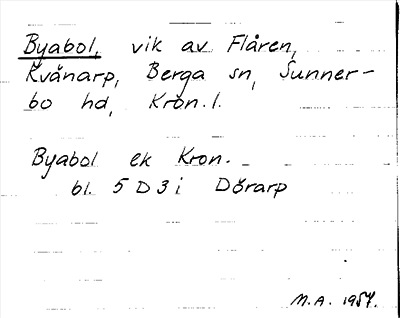 Byabol, vik av Flåren,
Kvänarp, Berga sn, Sunner-
bo hd, Kron.l.
Byabol ek Kron.
bl. 5D3i Dörarp
M.A. 1954.